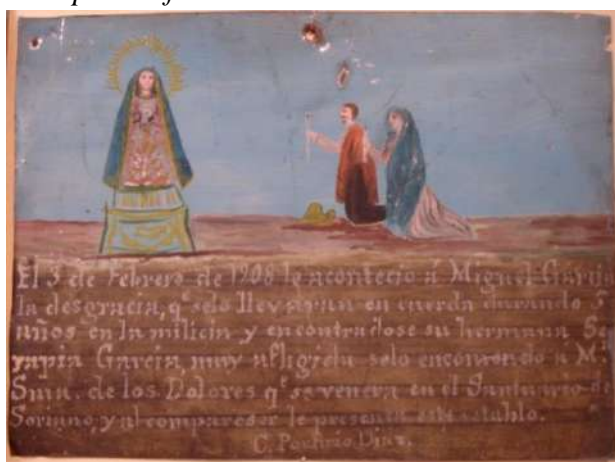 El 3 de Febrero de 1908 le acontecio á Miguel
la desgracia, qᵉ se lo llevaran en cuerda durando
años en la milicia y encontradose su hermana
rapia Garcia, muy afligida solo encomendo a
Sma. de los Dolores qᵉ se venera en el Santuario
Soriano, y al compareser le presenta este
C. Porfirio Diaz.